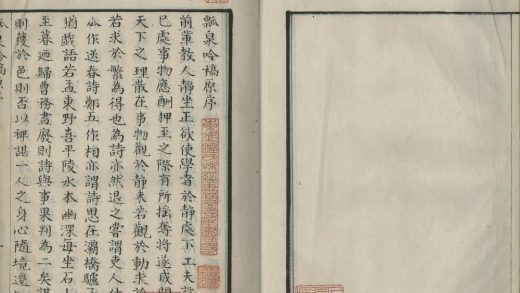 瓢泉吟稿原序
前輩教人靜坐正欲使學者於靜處下工夫
已處事物應酬狎至之際有所搖奪將遂或
天下之理散在事物觀於靜未若觀於動求於
若求於繁為得也為詩亦然退之嘗謂吏人休
公作送春詩鄭五作相亦謂詩思在灞橋驢
猶戲語若孟東野喜平陵水木幽深每坐石
至暮廼歸曹務盡廢則詩與事果判為二矣謀
則獲於邑則否以裨諶一人之身心隨境遷
瓢泉吟稿原序